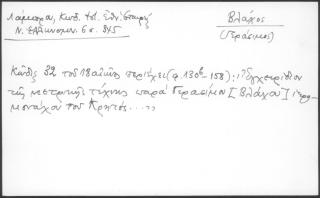 Λάμπρου, Κωδ.
Βλάχος
Ν. Ελληνομν. 6 σ. 345
(Γεράσιμος)
Κῶδιξ 32 του 18 αἰῶνος περιέχει (φ. 130α - 158): "Ἐγχειρίδιον
τῆς μετρικῆς τέχνης παρά Γερασίμου [Βλάχου] ἱερο
μονάχου του Κρητός...."